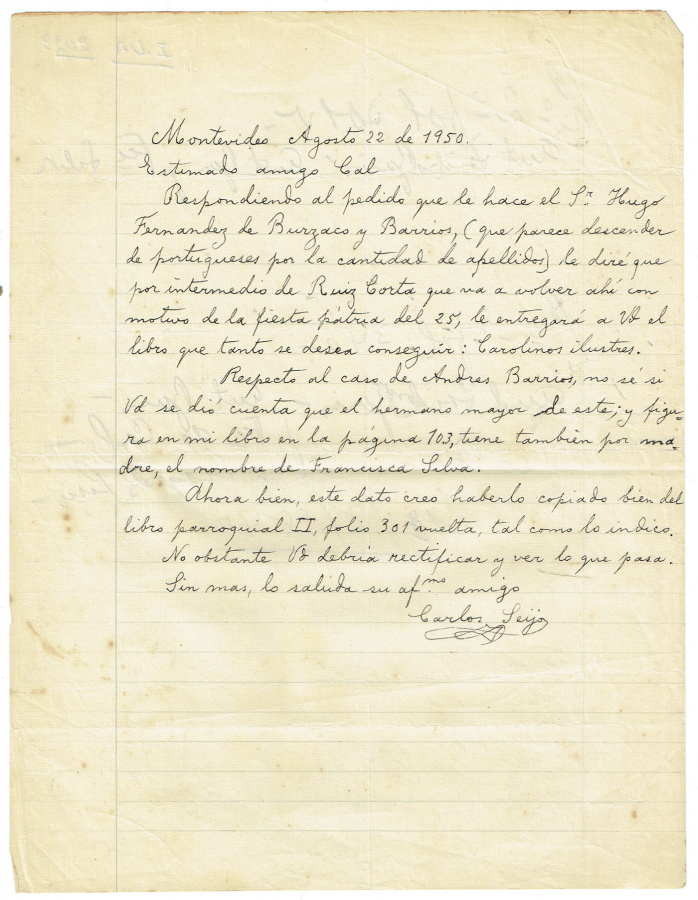 Montevideo Agosto 22 de 1950.
Estimado amigo Cal
Respondiendo al pedido que le hace el Sr. Hugo
Fernandez de Burzaco y Barrios, (que parece descender
de portugueses por la cantidad de apellidos) le diré que
por intermedio de Ruiz Corta que va a volver ahí con
motivo de la fiesta pátria del 25, le entregará a Vd el
libro que tanto se desea conseguir: Carolinos ilustres.
Respecto al caso de Andres Barrios, no sé si
Vd se dió cuenta que el hermano mayor de este; y figu-
ra en mi libro en la página 103, tiene tambien por ma-
dre, el nombre de Francisca Silva.
Ahora bien, este dato creo haberlo copiado bien del
libro parroquial II, folio 301 vuelta, tal como lo indico.
No obstante Vd debría rectificar y ver lo que pasa.
Sin mas, lo saluda su af.mo amigo
Carlos Seijo